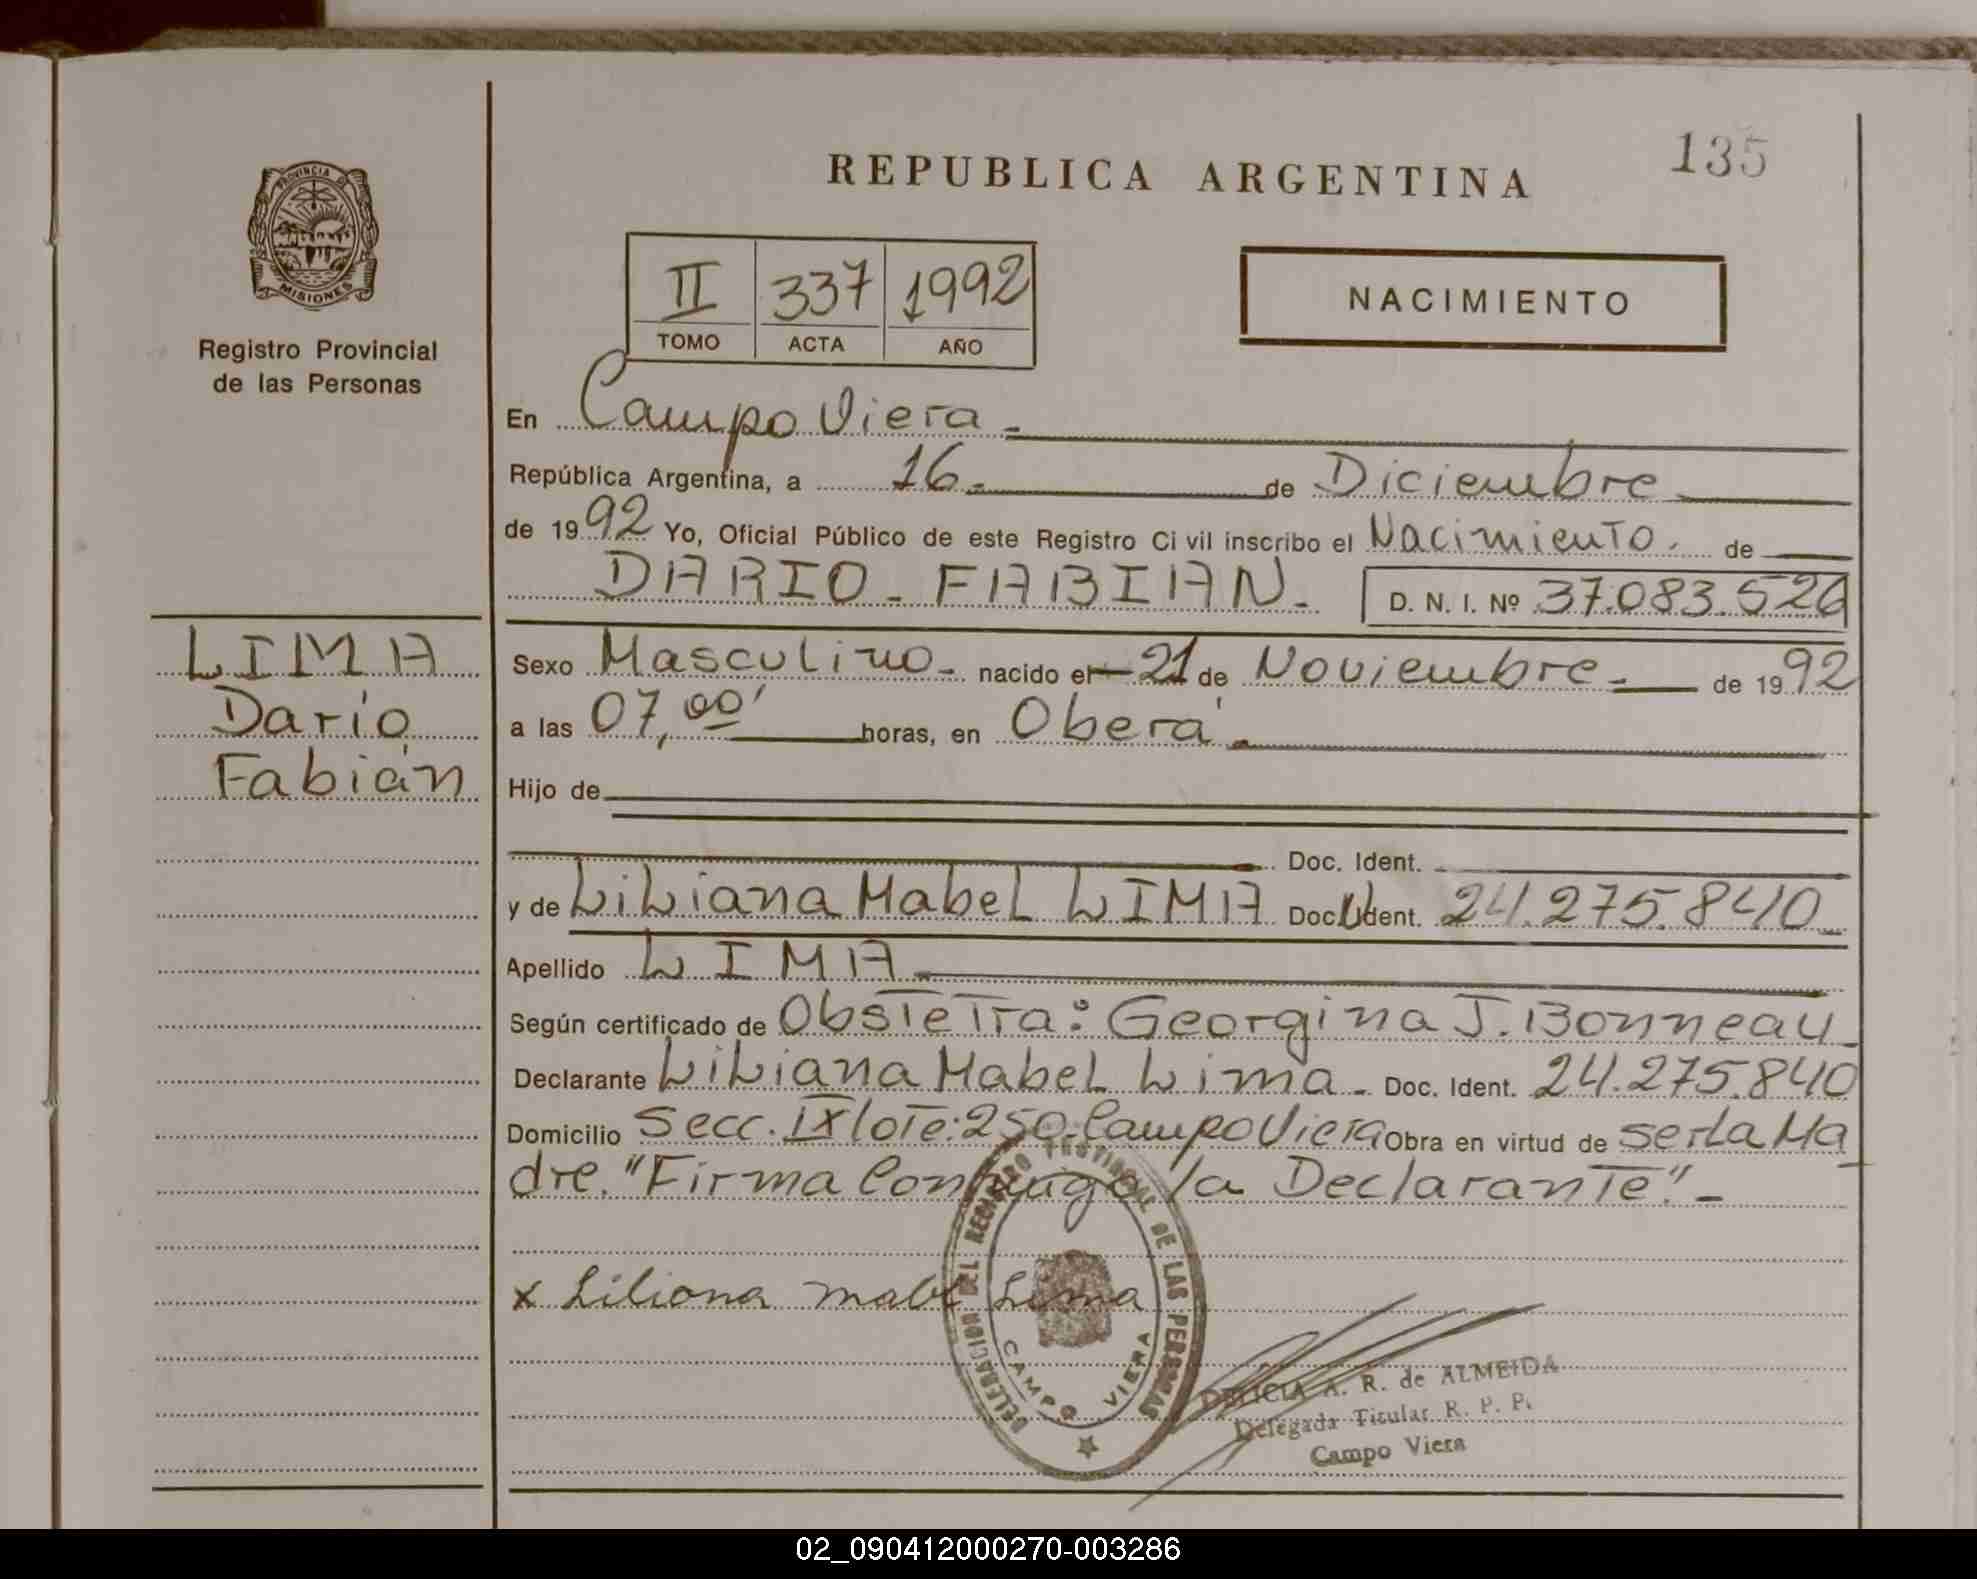 135
REPUBLICA ARGENTINA
PROVINCIA DE
MISIONES
Registro Provincial
de las Personas
II 337 1992
TOMO ACTA AÑO
NACIMIENTO
En Campo Viera
República Argentina, a 16 de Diciembre
de 1992 Yo, Oficial Público de este Registro Civil inscribo el Nacimiento. de
DARIO - FABIAN - D. N. I. Nº 37.083.526
LIMA
Darío
Fabián
Sexo Masculino - nacido el 21 de Noviembre - de 1992
a las 07,00' horas, en Oberá
Hijo de
Doc. Ident.
y de Liliana Mabel LIMA Doc. Ident. 24.275.840
Apellido LIMA
Según certificado de Obstetra: Georgina J. Bonneau
Declarante Liliana Mabel Lima - Doc. Ident. 24.275.840
Domicilio Secc. IX lote: 250 - Campo Viera Obra en virtud de ser la Ma
dre. "Firma Conmigo la Declarante". -
x Liliana Mabel Lima
DELEGACION DEL REGISTRO PROVINCIAL DE LAS PERSONAS
CAMPO VIERA
DELICIA A. R. de ALMEIDA
Delegada Titular R. P. P.
Campo Viera
02_090412000270-003286